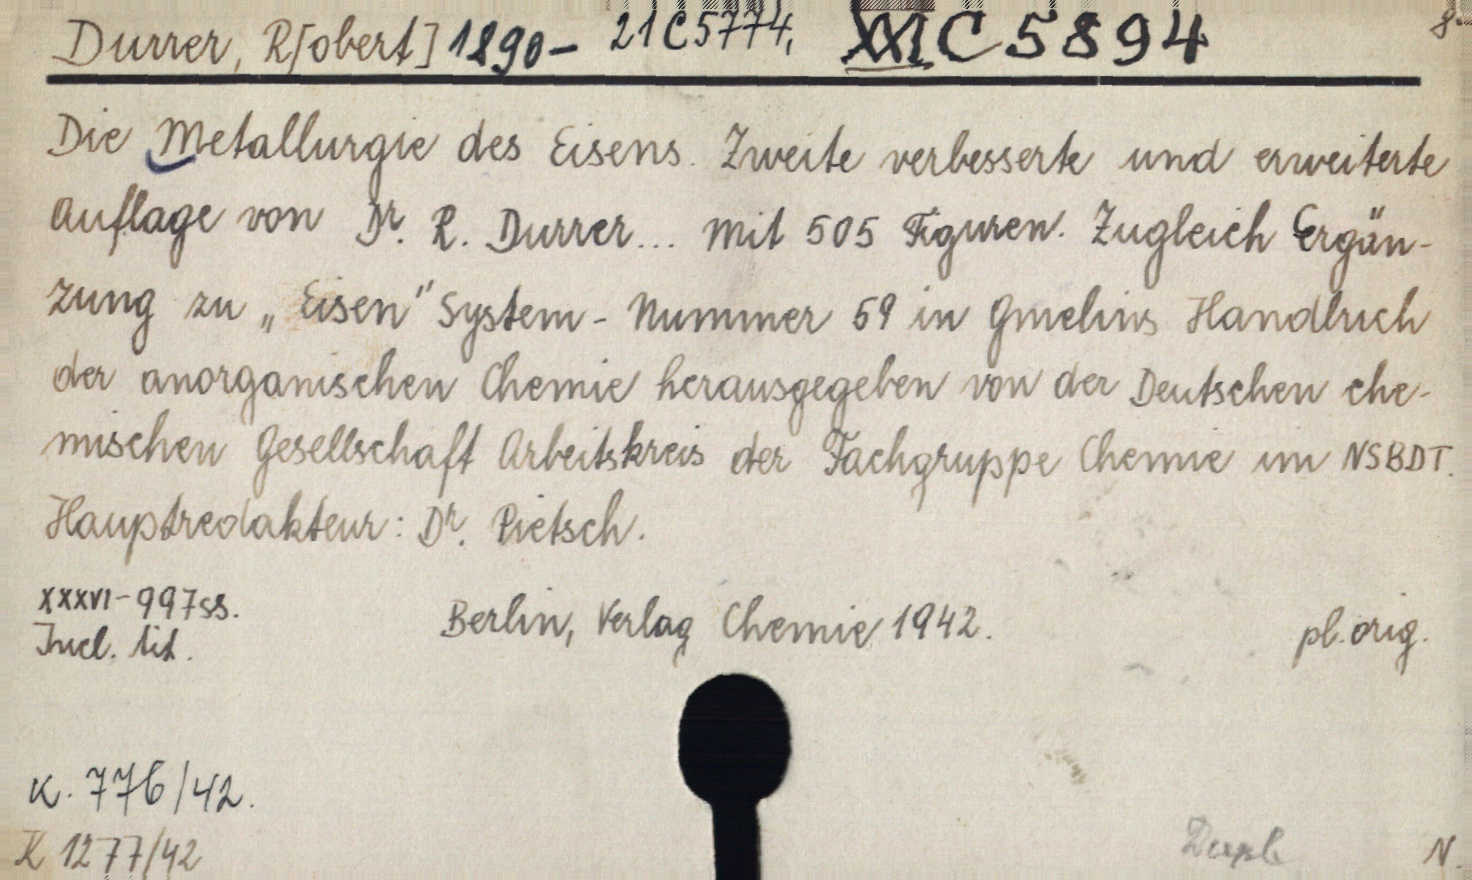 Durrer, R[obert] 1890- 21C5774, XXI C 5894
Die Metallurgie des Eisens. Zweite verbesserte und erweiterte
Auflage von Dr. R. Durrer... Mit 505 Figuren. Zugleich Ergän-
zung zu „Eisen" System-Nummer 59 in Gmelins Handbuch
der anorganischen Chemie herausgegeben von der Deutschen che-
mischen Gesellschaft Arbeitskreis der Fachgruppe Chemie im NSBDT.
Hauptredakteur: Dr. Pietsch.
XXXVI-997ss.
Incl. tit.
Berlin, Verlag Chemie 1942.
pl. orig.
K. 776/42.
K 1277/42
Dupl
N.